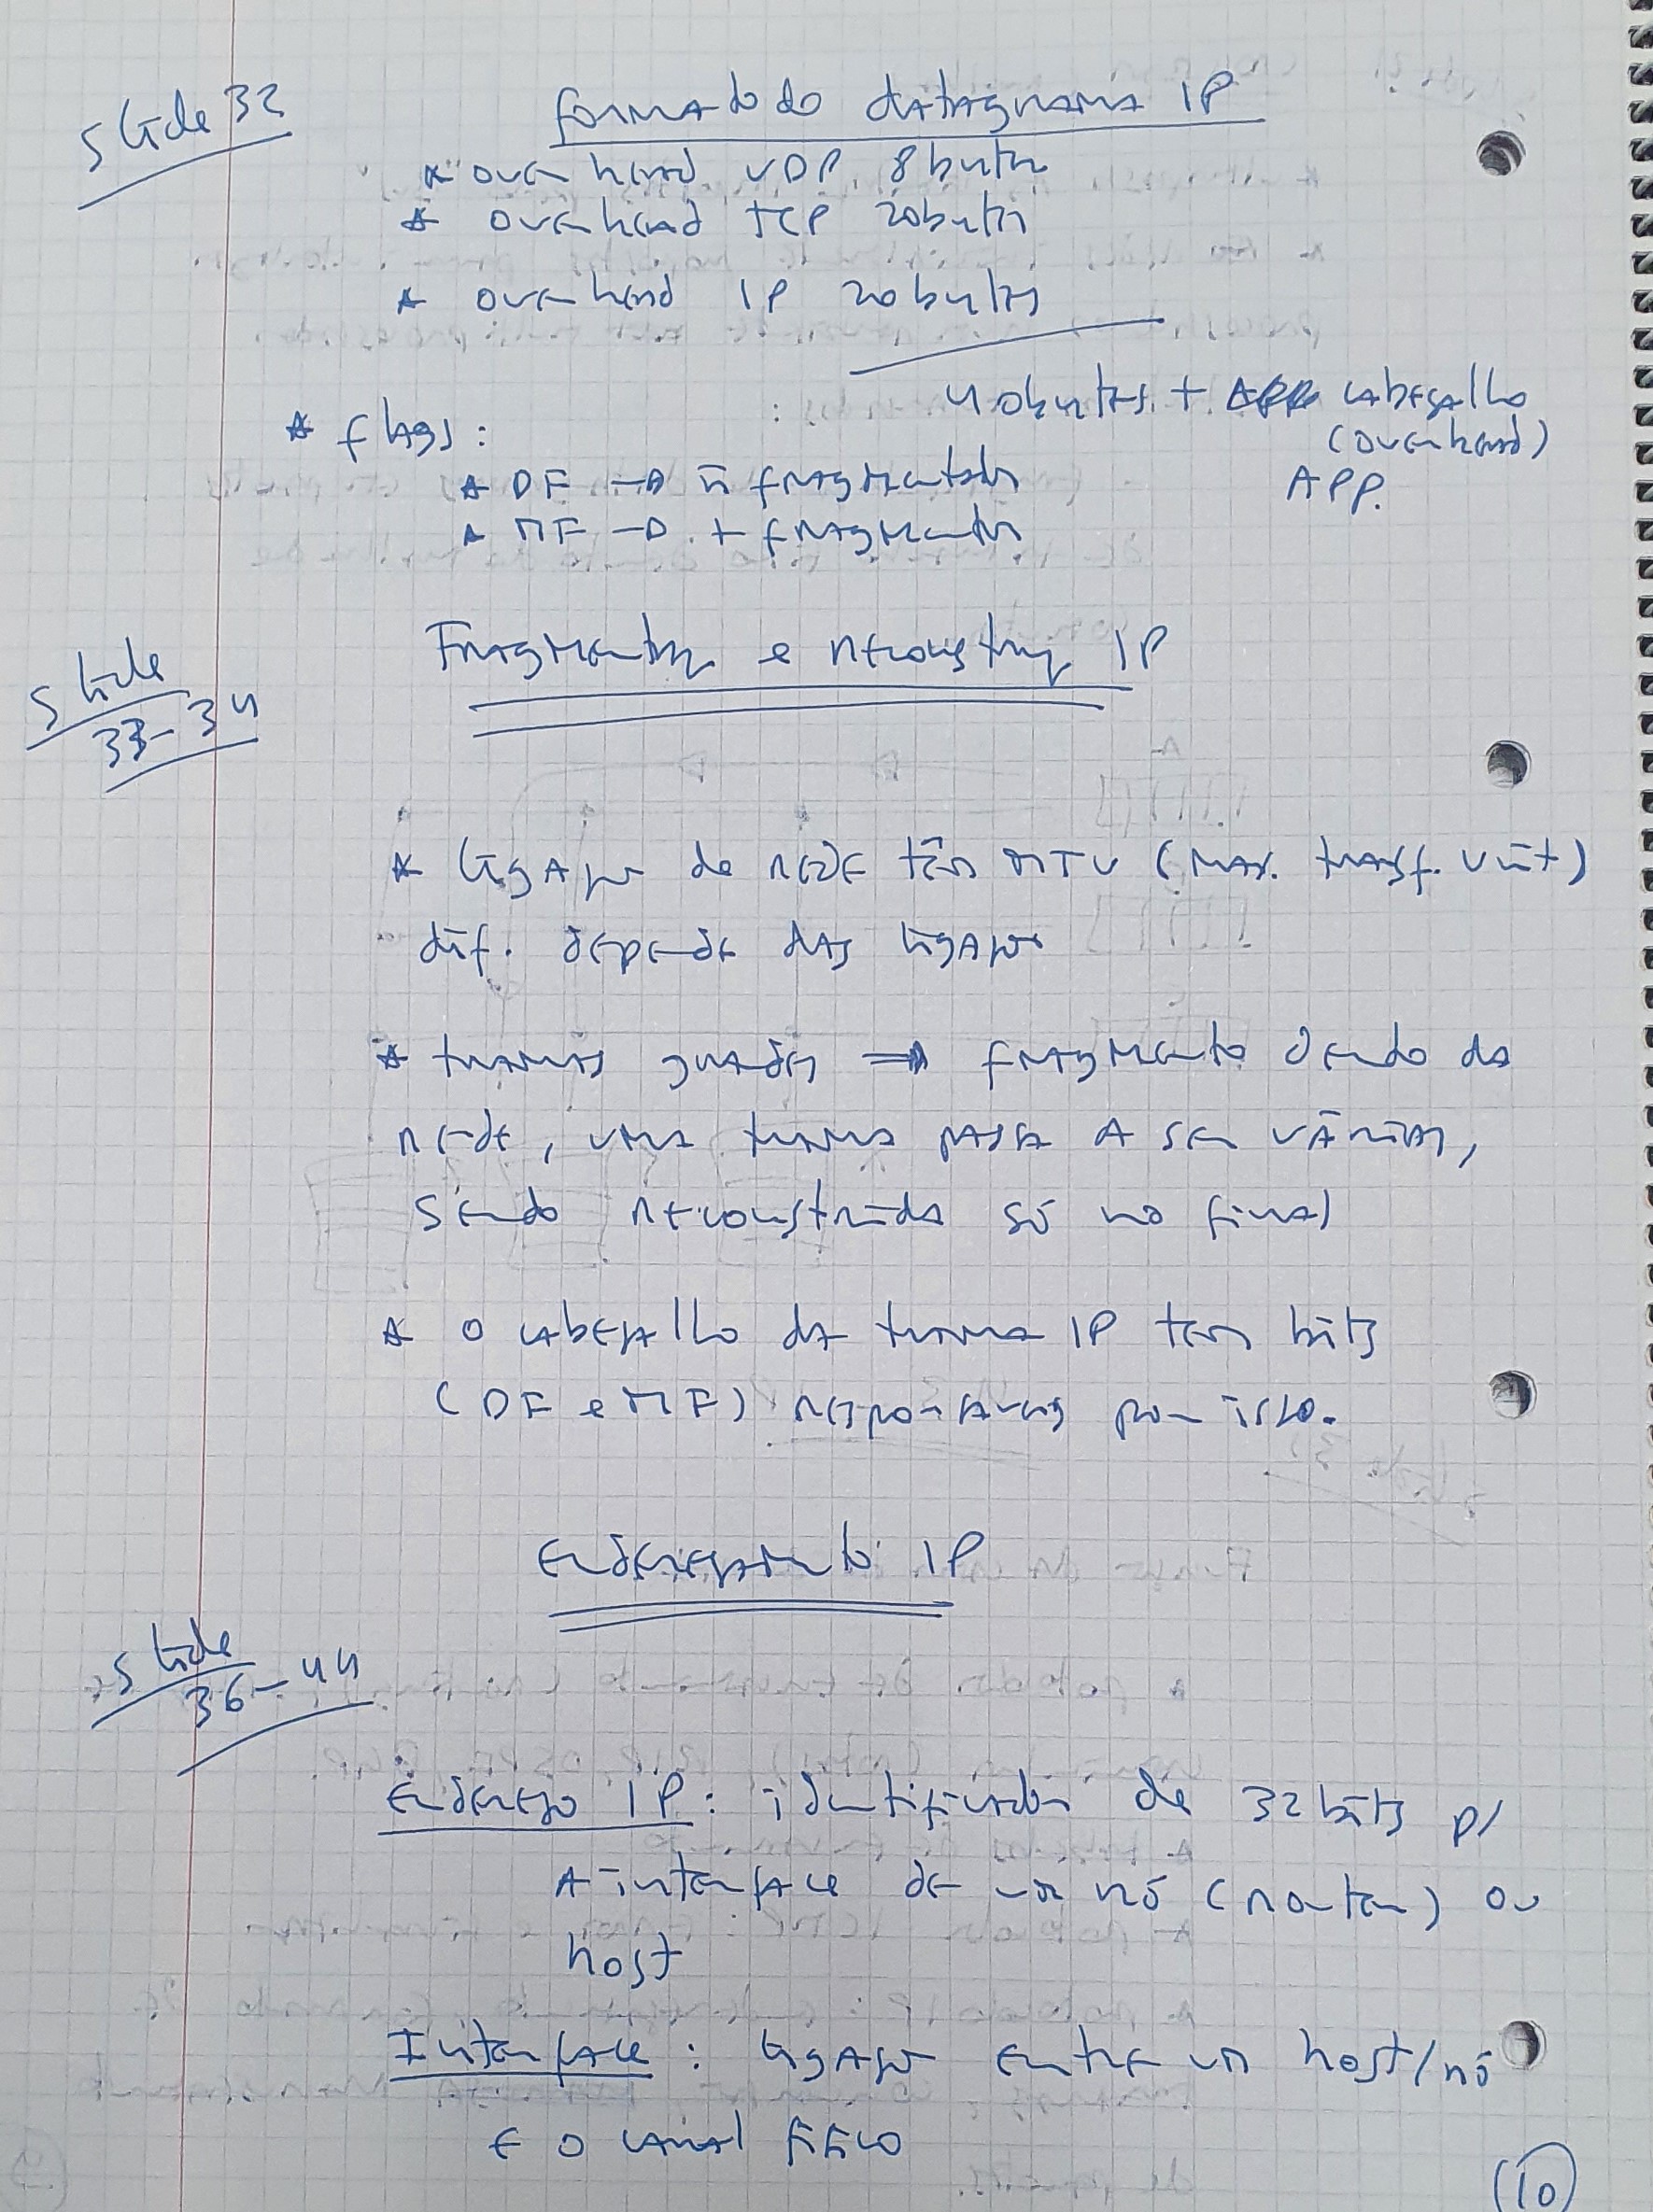 Slide 32
Formato do datagrama IP
* overhead UDP 8 bytes
* overhead TCP 20 bytes
* overhead IP 20 bytes
40 bytes + cabeçalho
(overhead)
APP.
* flags:
* DF → ñ fragmentado
* MF → + fragmentos
Slide
33-34
Fragmentaç e reconstruç IP
* ligações de rede têm MTU (max. transf. unit)
dif. depende das ligações
* tramas grandes ⇒ fragmento dendo da
rede, uma trama passa a ser várias,
sendo reconstruída só no final
* o cabeçalho da trama IP tem bits
(DF e MF) responsáveis por isso.
Endereçamento IP
Slide
36-44
Endereço IP: identificador de 32 bits p/
a interface de um nó (router) ou
host
Interface: ligação entre um host/nó
e o canal físico
10